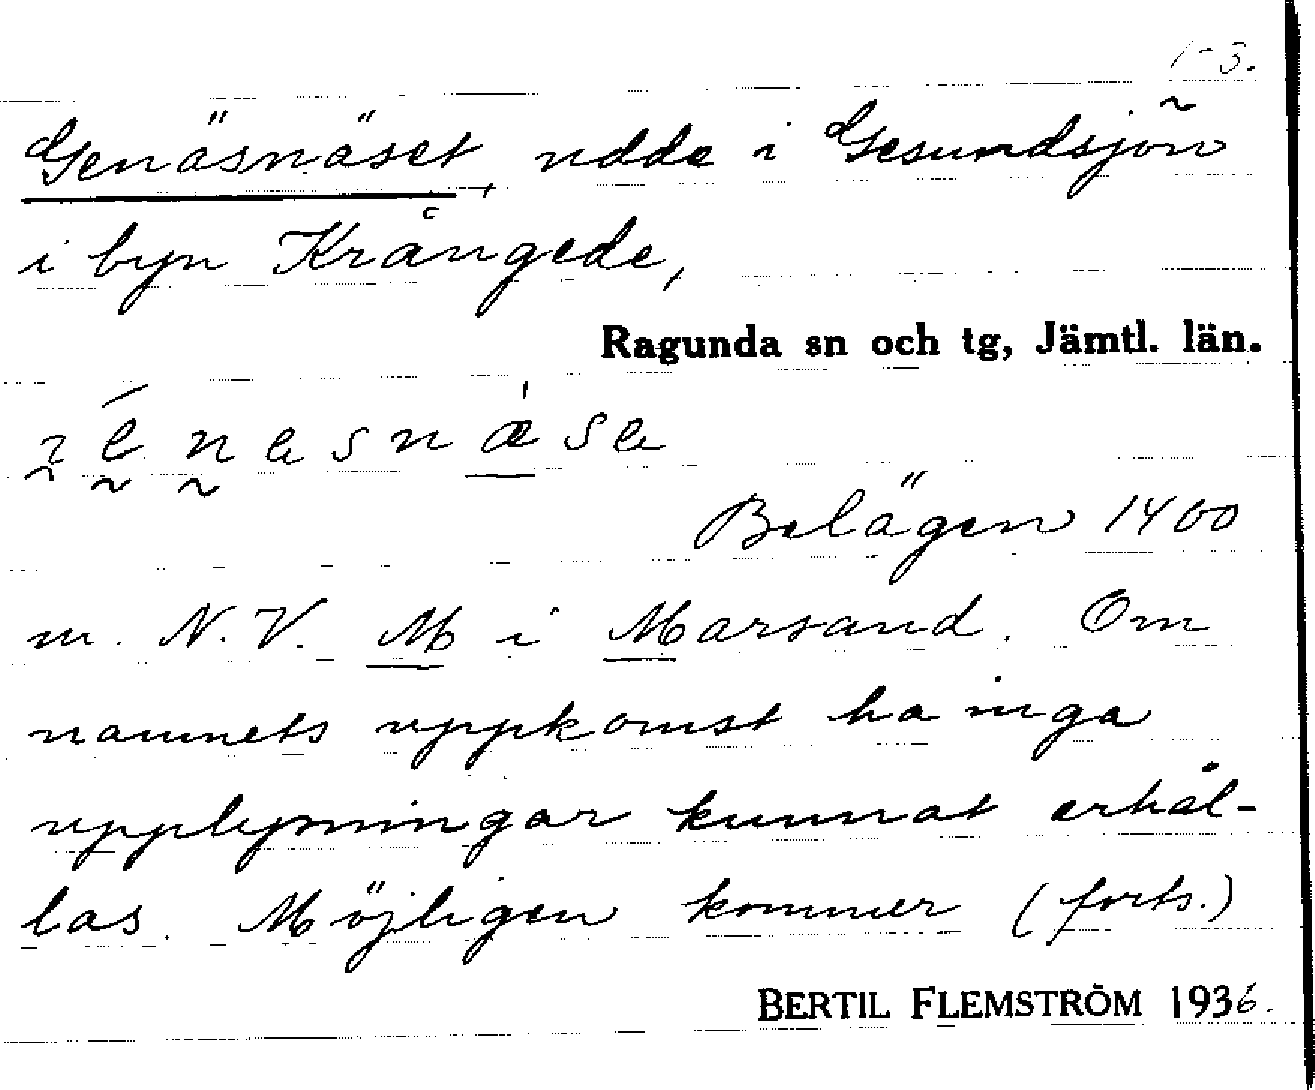 1-3.
Genäsnäset, udde i Gesundsjön
i byn Krångede,
Ragunda sn och tg, Jämtl. län.
Belägen 1400
m. N.V. M i Marsand. Om
namnets uppkomst ha inga
upplysningar kunnat erhål-
las. Möjligen kommer (forts.)
BERTIL FLEMSTRÖM 1936.